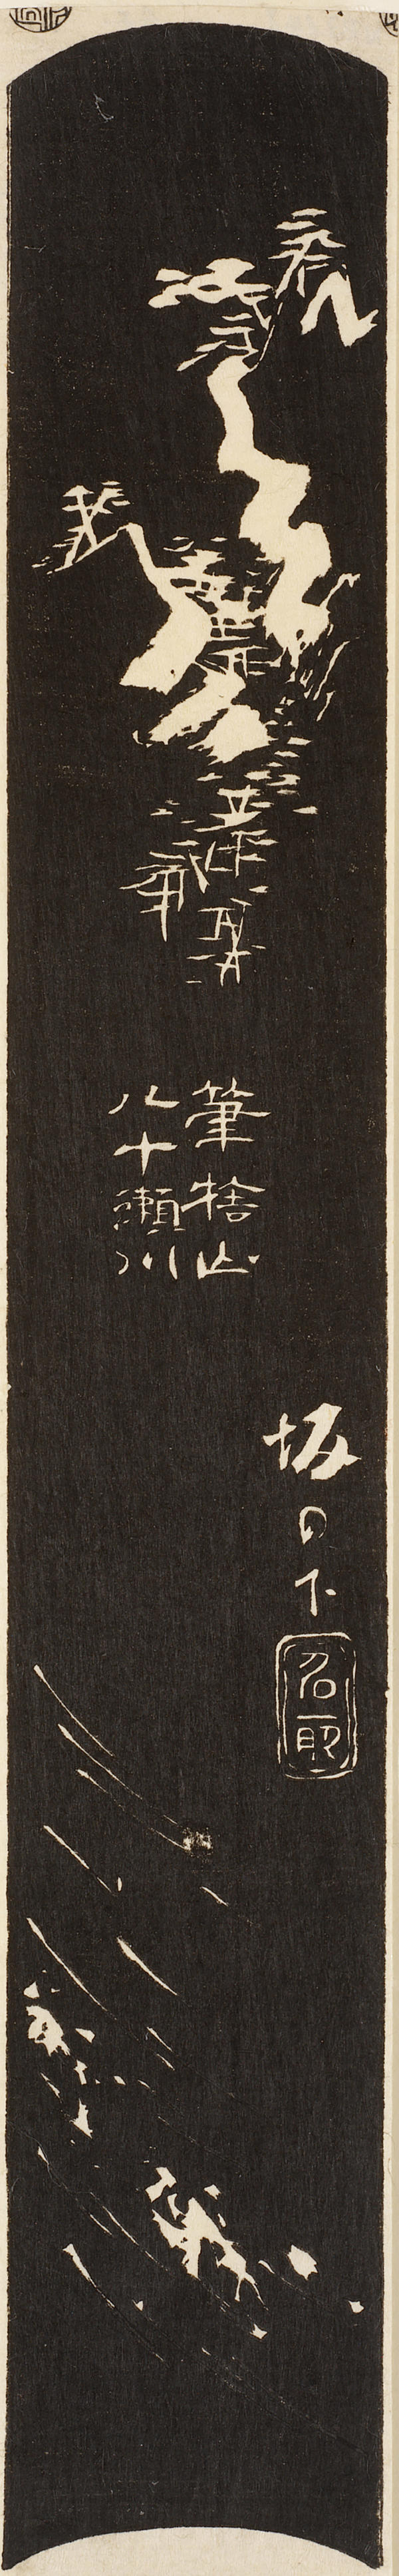 坂の下
名所
筆捨山
八十瀬川